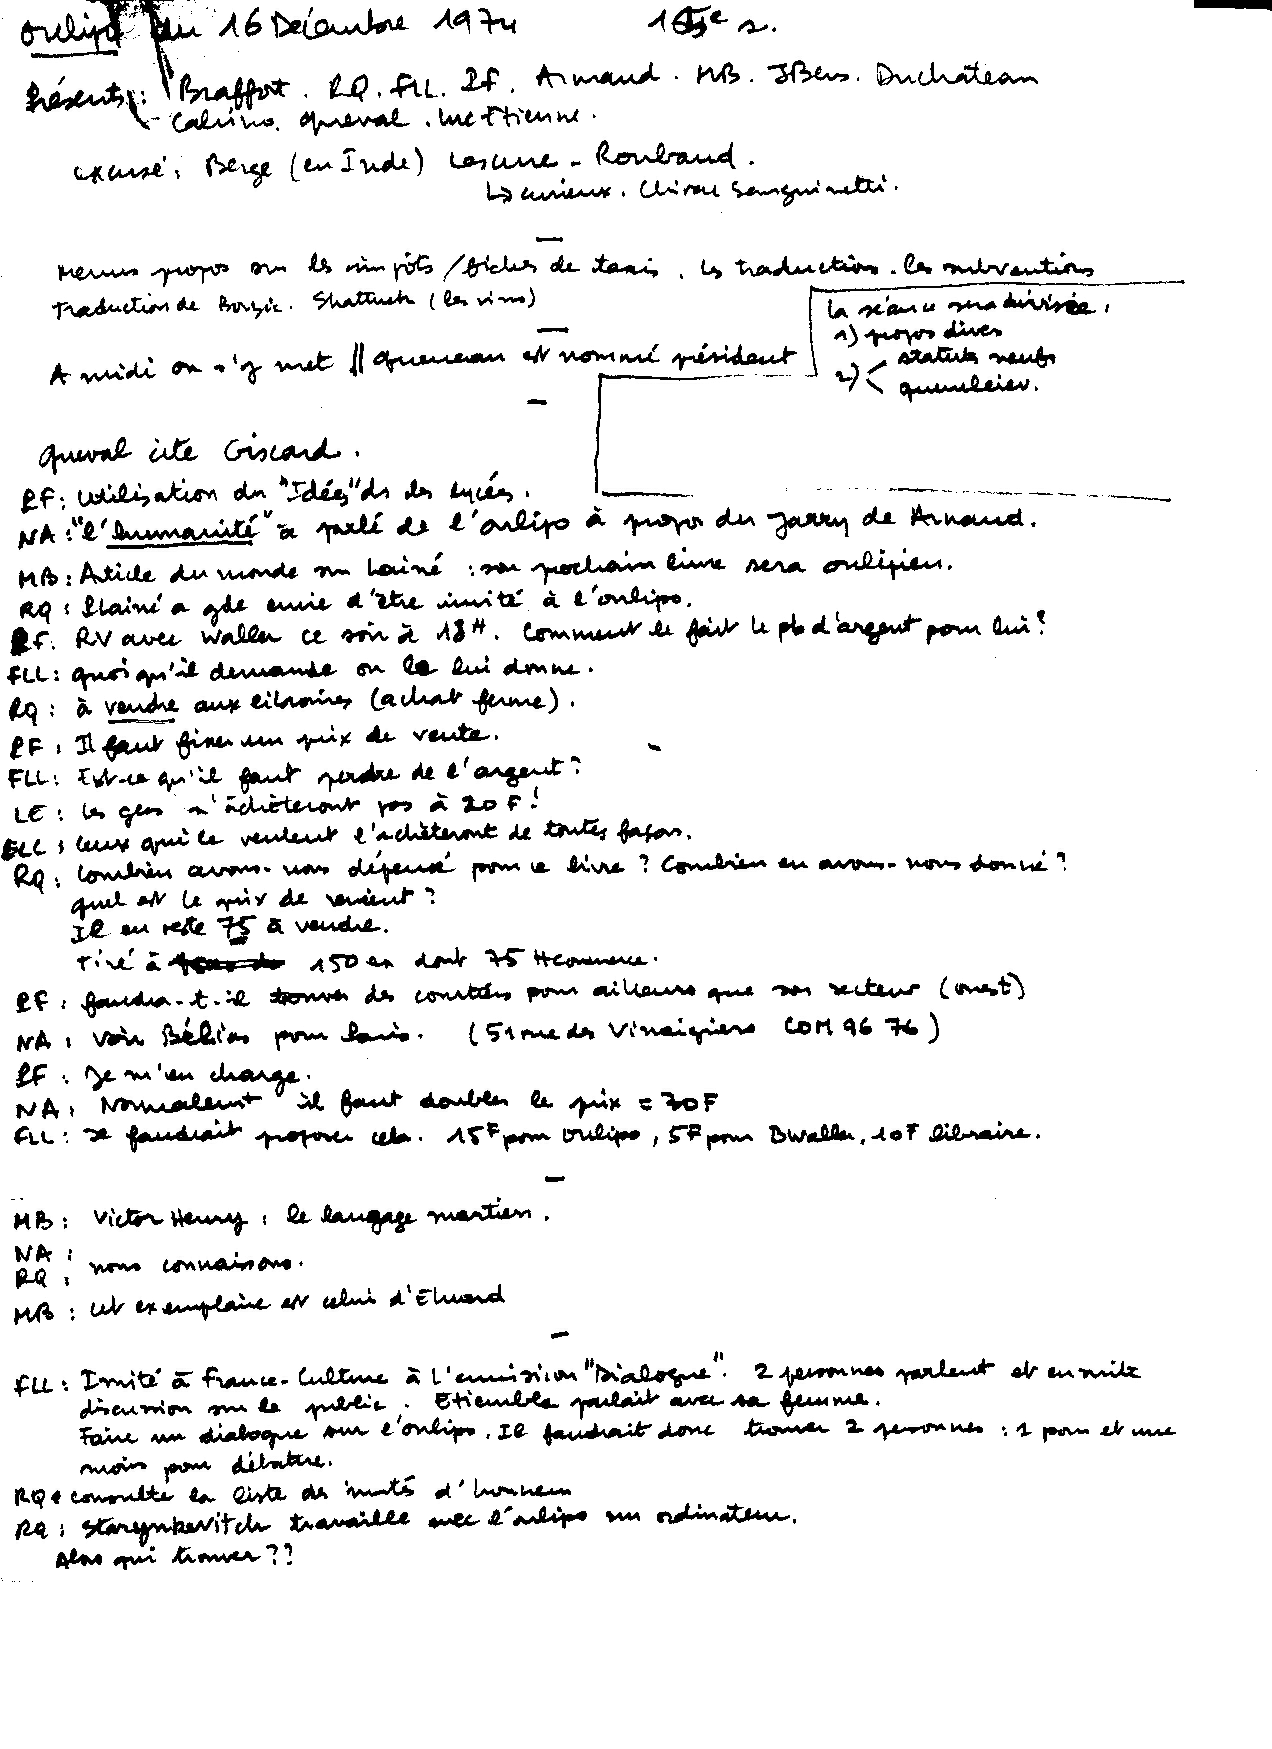 Oulipo du 16 Décembre 1974
Présents : Braffort. RQ. FLL. PF. Arnaud. MB. JBens. Duchateau
Calvino. Queval. Luc Etienne.
excusé : Berge (en Inde) Lescure - Roubaud.
↳ curieux. Chirac Sanguinetti.
Menus propos sur les impôts / fiches de taxis, les traductions. les subventions
Traduction de Shattuck (les vins)
La séance sera divisée :
1) propos divers
2) < statuts neufs
queneleiev.
A midi on s'y met || Queneau est nommé président
Queval cite Giscard.
PF : Utilisation du "Idées" ds les lycées.
NA : "l'humanité" a parlé de l'oulipo à propos du Jarry de Arnaud.
MB : Article du monde sur Lainé : son prochain livre sera oulipien.
RQ : Lainé a gde envie d'être invité à l'oulipo.
PF : RV avec Waller ce soir à 18H. Comment se fait le pb d'argent pour lui ?
FLL : quoi qu'il demande on le lui donne.
RQ : à vendre aux libraires (achat ferme).
PF : Il faut fixer un prix de vente.
FLL : Est-ce qu'il faut perdre de l'argent ?
LE : les gens n'achèteront pas à 20 F !
FLL : Ceux qui le veulent l'achèteront de toutes façons.
RQ : Combien avons-nous dépensé pour ce livre ? Combien en avons-nous donné ?
quel est le prix de revient ?
Il en reste 75 à vendre.
Tiré à 150 ex dont 75 Hcommerce.
PF : faudra-t-il trouver des courtiers pour ailleurs que son secteur (ouest)
NA : Voir Bélias pour Paris. (51 rue des Vinaigriers COM 96 76)
PF : Je m'en charge.
NA : Normalemt il faut doubler le prix = 30F
FLL : Il faudrait proposer cela. 15F pour Oulipo, 5F pour BWaller, 10F libraire.
MB : Victor Henry : le langage martien.
NA :
RQ : nous connaissons.
MB : Cet exemplaire est celui d'Eluard
FLL : Invité à France-Culture à l'émission "Dialogue". 2 personnes parlent et ensuite
discussion sur le public. Etiemble parlait avec sa femme.
Faire un dialogue sur l'oulipo. Il faudrait donc trouver 2 personnes : 1 pour et une
moins pour débattre.
RQ : consulte la liste des invités d'honneur
RQ : Starynkevitch travaille avec l'oulipo sur ordinateur.
Alors qui trouver ??